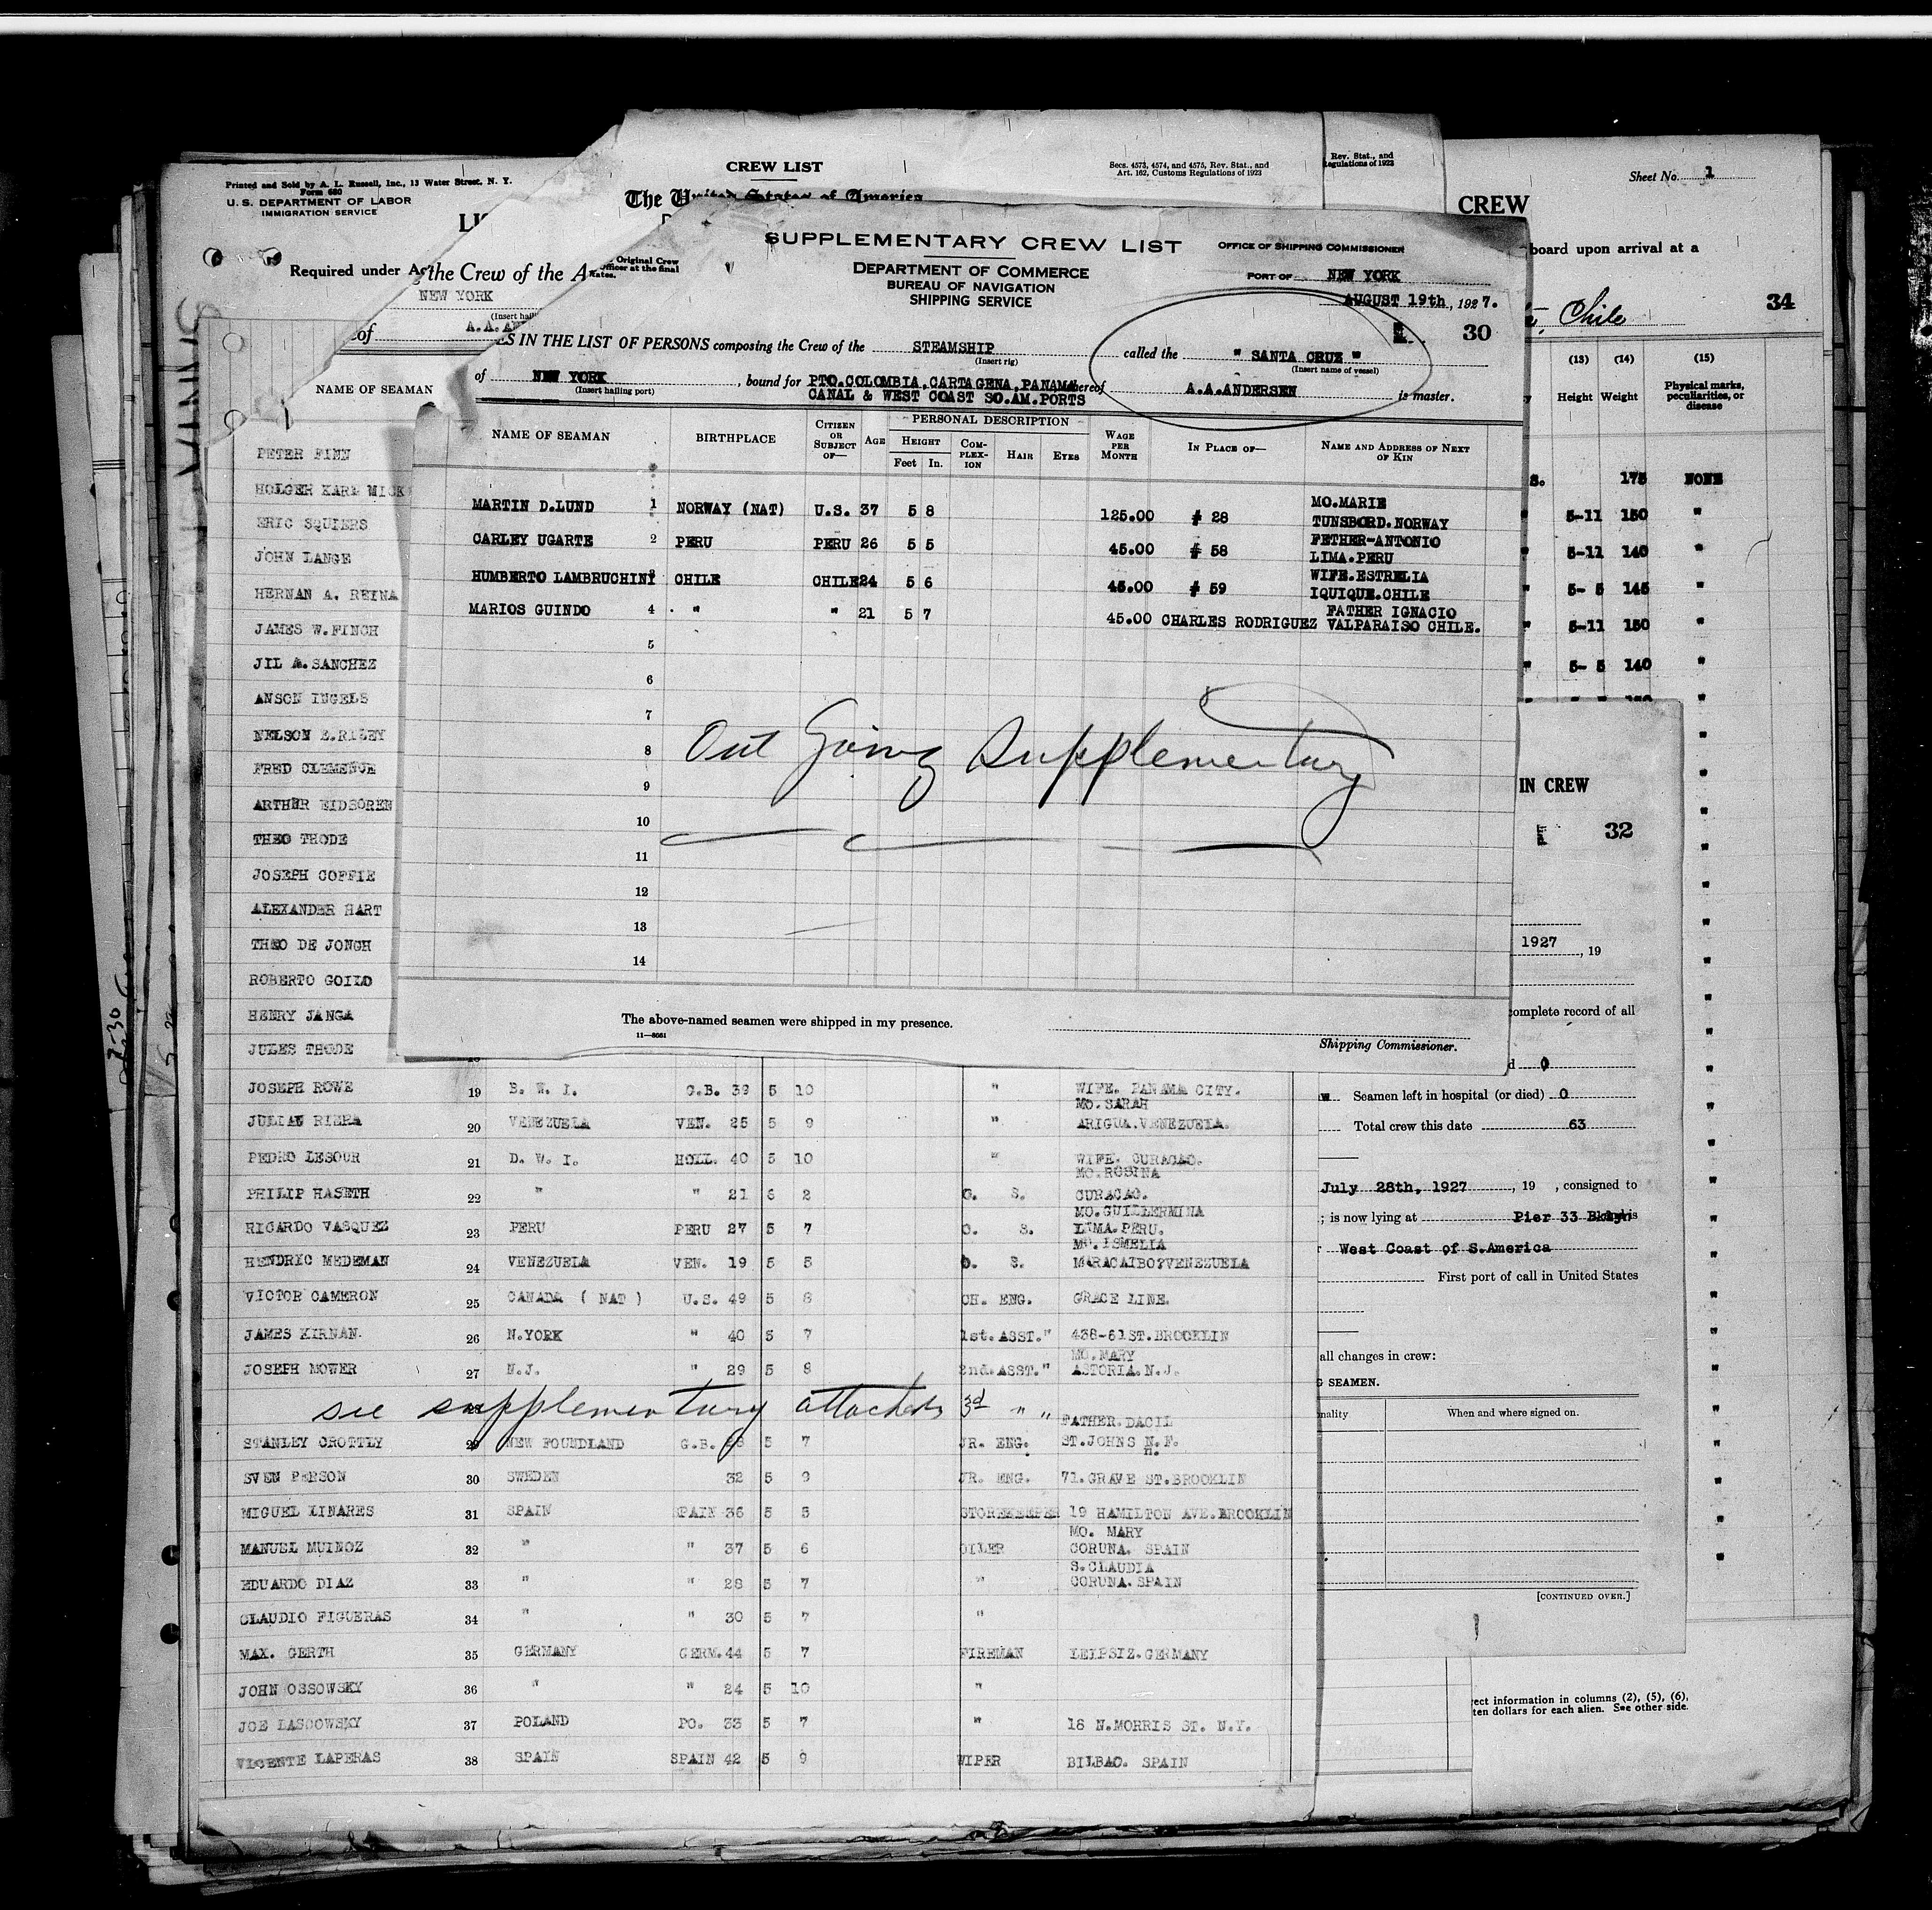 Printed and Sold by A. L. Russell, Inc., 13 Water Street, N. Y.
Form 680
U. S. DEPARTMENT OF LABOR
IMMIGRATION SERVICE
Required under
CREW LIST
Secs. 4573, 4574, and 4575, Rev. Stat., and
Art. 162, Customs Regulations of 1923
The United States of America
Original Crew
Officer at the final
the Crew of the
NEW YORK
of
NAME OF SEAMAN
Rev. Stat., and
Regulations of 1923
Sheet No. 1
CREW
board upon arrival at a
Chile
34
(13) (14) (15)
Height Weight Physical marks, peculiarities, or disease
SUPPLEMENTARY CREW LIST
OFFICE OF SHIPPING COMMISSIONER
DEPARTMENT OF COMMERCE
BUREAU OF NAVIGATION
SHIPPING SERVICE
PORT OF NEW YORK
AUGUST 19th, 1927.
30
IN THE LIST OF PERSONS composing the Crew of the STEAMSHIP called the " SANTA CRUZ "
(Insert rig) (Insert name of vessel)
of NEW YORK, bound for PTO.COLOMBIA,CARTAGENA,PANAMA whereof A.A.ANDERSEN is master.
(Insert hailing port) CANAL & WEST COAST SO.AM.PORTS
NAME OF SEAMAN BIRTHPLACE CITIZEN OR SUBJECT OF— AGE PERSONAL DESCRIPTION WAGE PER MONTH IN PLACE OF— NAME AND ADDRESS OF NEXT OF KIN
HEIGHT COMPLEXION HAIR EYES
Feet In.
MARTIN D.LUND 1 NORWAY (NAT) U.S. 37 5 8 125.00 # 28 MO.MARIE
TUNSBORD.NORWAY
CARLEY UGARTE 2 PERU PERU 26 5 5 45.00 # 58 FETHER-ANTONIO
LIMA.PERU
HUMBERTO LAMBRUCHINI CHILE CHILE 24 5 6 45.00 # 59 WIFE.ESTRELIA
IQUIQUE.CHILE
MARIOS GUINDO 4 " " 21 5 7 45.00 CHARLES RODRIGUEZ FATHER IGNACIO
VALPARAISO CHILE.
5
6
7
8
9
10
11
12
13
14
Out Going Supplementary
The above-named seamen were shipped in my presence.
11—8661
Shipping Commissioner.
PETER FINN
HOLGER KARL
ERIC SQUIERS
JOHN LANGE
HERNAN A. REINA
JAMES W.FINCH
JIL A.SANCHEZ
ANSON INGELS
NELSON E.RILEY
FRED CLEMENCE
ARTHER EIDSOREN
THEO THODE
JOSEPH COFFIE
ALEXANDER HART
THEO DE JONGH
ROBERTO GOILO
HENRY JANGA
JULES THODE
JOSEPH ROWE 19 B. W. I. G.B. 39 5 10 " WIFE. PANAMA CITY.
MO.SARAH
JULIAN RIERA 20 VENEZUELA VEN. 25 5 9 " ARIGUA.VENEZUELA.
PEDRO LESOUR 21 D. W. I. HOLL. 40 5 10 " WIFE. CURACAO.
MO.ROSINA
PHILIP HASETH 22 " " 21 6 2 O. S. CURACAO.
MO.GUILLERMINA
RICARDO VASQUEZ 23 PERU PERU 27 5 7 O. S. LIMA.PERU.
MO.ISMELIA
HENDRIC MEDEMAN 24 VENEZUELA VEN. 19 5 5 O. S. MARACAIBO?VENEZUELA
VICTOR CAMERON 25 CANADA ( NAT ) U.S. 49 5 8 CH. ENG. GRACE LINE.
JAMES KIRNAN. 26 N.YORK " 40 5 7 1st.ASST." 438-61ST.BROOKLIN
MO.MARY
JOSEPH MOWER 27 N.J. " 29 5 8 2nd.ASST." ASTORIA.N.J.
see supplementary attached 3d " "
FATHER.DACIL
STANLEY CROTTLY 29 NEW FOUNDLAND G.B. 5 7 JR. ENG. ST.JOHNS N.F.
SVEN PERSON 30 SWEDEN 32 5 9 JR. ENG. 71.GRAVE ST.BROOKLIN
MIGUEL LINARES 31 SPAIN SPAIN 36 5 5 STOREKEEPER 19 HAMILTON AVE.BROOKLIN
MO. MARY
MANUEL MUINOZ 32 " " 37 5 6 OILER CORUNA. SPAIN
S.CLAUDIA
EDUARDO DIAZ 33 " " 28 5 7 " CORUNA.SPAIN
CLAUDIO FIGUERAS 34 " " 30 5 7 "
MAX. GERTH 35 GERMANY GERM.44 5 7 FIREMAN LEIPSIZ.GERMANY
JOHN OSSOWSKY 36 " " 24 5 10 "
JOE LASDOWSKY 37 POLAND PO. 33 5 7 " 18 N.MORRIS ST. N.Y.
VICENTE LAPERAS 38 SPAIN SPAIN 42 5 9 WIPER BILBAO. SPAIN
S. 175 NONE
" 5-11 150 "
" 5-11 140 "
" 5- 5 145 "
" 5-11 150 "
" 5- 5 140 "
IN CREW
32
1927, 19
complete record of all
0
Seamen left in hospital (or died) 0
Total crew this date 63
July 28th, 1927, 19 , consigned to
; is now lying at Pier 33 Bklyn
West Coast of S.America
First port of call in United States
all changes in crew:
SEAMEN.
When and where signed on.
[CONTINUED OVER.]
information in columns (2), (5), (6),
ten dollars for each alien. See other side.